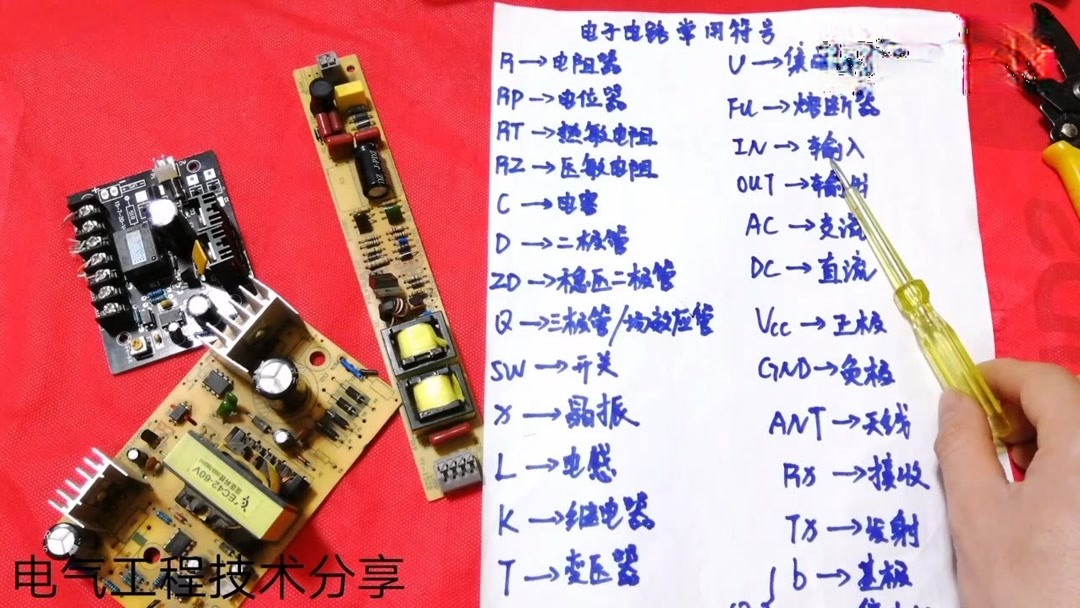 电子电路常用符号
R→电阻器
RP→电位器
RT→热敏电阻
RZ→压敏电阻
C→电容
D→二极管
ZD→稳压二极管
Q→三极管/场效应管
SW→开关
X→晶振
L→电感
K→继电器
T→变压器
U→集
FU→熔断器
IN→输入
OUT→输出
AC→交流
DC→直流
Vcc→正极
GND→负极
ANT→天线
RX→接收
TX→发射
b→基极
EC42-60V
电气工程技术分享